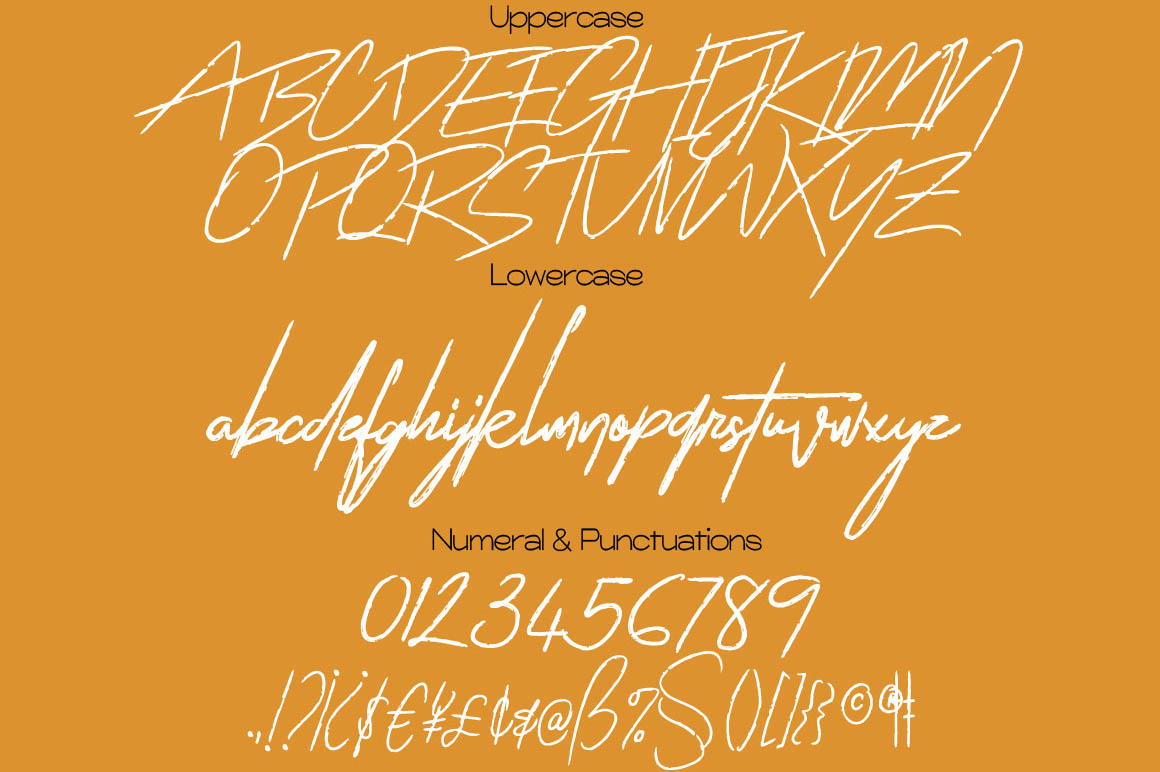 Uppercase
ABCDEFGHIJKLMN
OPQRSTUVWXYZ
Lowercase
abcdefghijklmnopqrstuvwxyz
Numeral & Punctuations
0123456789
.,!?¡¿$€¥£¢&@ß%§()[]{}©®¶‡